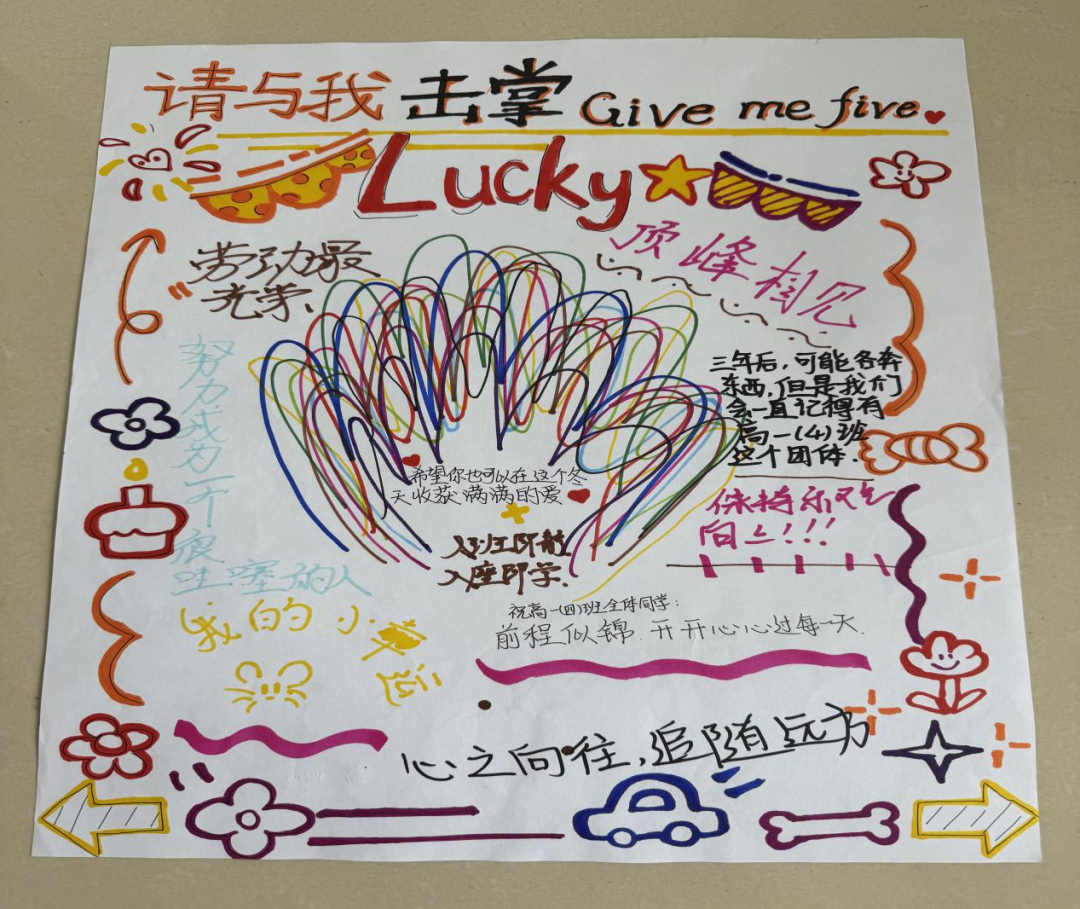 请与我击掌 Give me five
Lucky
劳动最
光荣
顶峰相见
三年后，可能各奔
东西，但是我们
会一直记得有
高一(4)班
这个团体.
努力成为一个很
哇塞的人
希望你也可以在这个冬
天收获满满的爱
入班即静
入座即学.
保持永远
向上!!!
我的小幸运
祝高一(四)班全体同学：
前程似锦.开开心心过每一天.
心之向往,追随远方